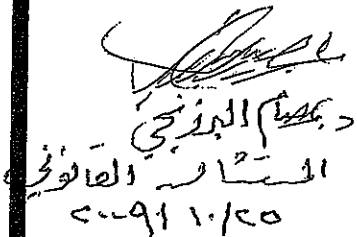 د. عصام البرزنجي
المستشار القانوني
٢٠٠٩/١٠/٢٥